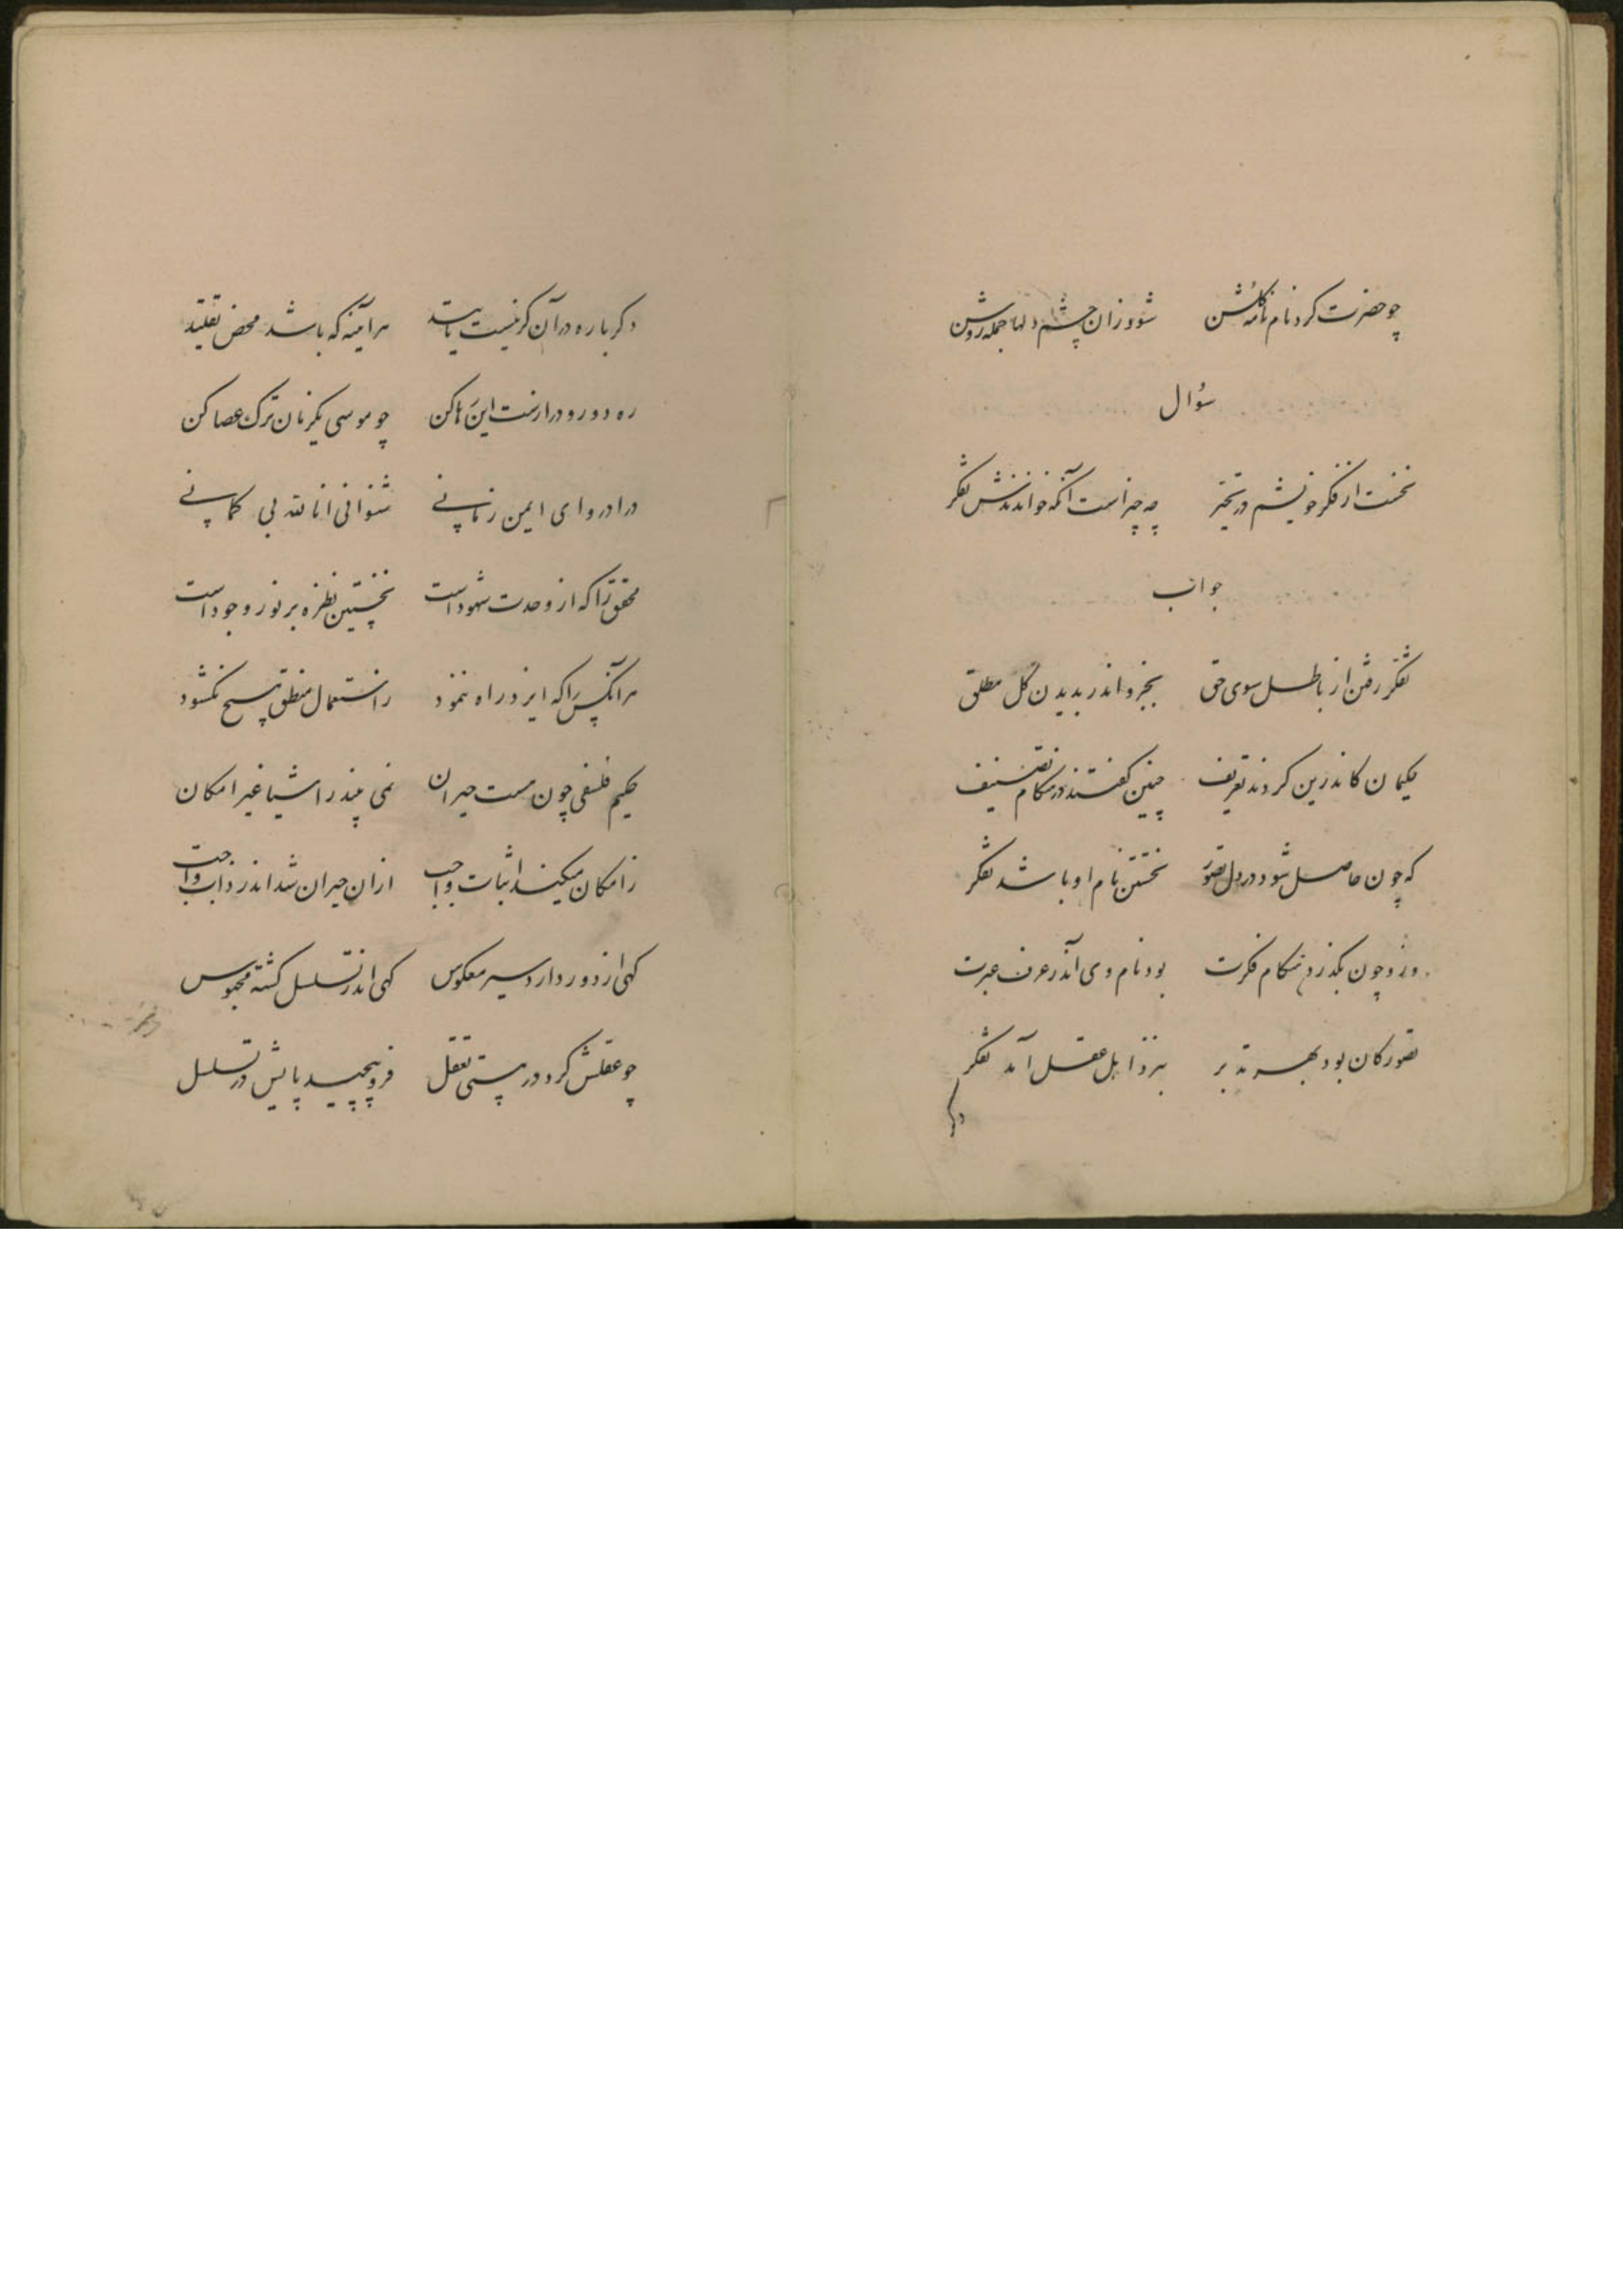 چو حضرت کرد نام نامه گلشن شود زان چشم دلها جمله روشن
سؤال
نخست از فکر خویشم در تحیر چه چیز است آنکه خوانندش تفکر
جواب
تفکر رفتن از باطل سوی حق بجزو اندر بدیدن کل مطلق
حکیمان کاندرین کردند تعریف چنین گفتند در هنگام تصنیف
که چون حاصل شود در دل تصور نخستین نام او باشد تفکر
وزو چون بگذرد هنگام فکرت بود نام وی اندر عرف عبرت
تصور کان بود بهر تدبر بنزد اهل عقل آمد تفکر
دگر باره در آن گر نیست تایید هر آینه که باشد محض تقلید
ره دور و دراز است این رها کن چو موسی یکزمان ترک عصا کن
درا در وادی ایمن زمانی شنو انی انا الله بی گمانی
محقق را که از وحدت شهود است نخستین نظره بر نور وجود است
هر آنکس را که ایزد راه ننمود ز استعمال منطق هیچ نگشود
حکیم فلسفی چون هست حیران نمی بیند ز اشیا غیر امکان
ز امکان میکند اثبات واجب ازان حیران شد اندر ذات واجب
گهی از دور دارد سیر معکوس گهی اندر تسلسل گشته محبوس
چو عقلش کرد در هستی تعقل فرو پیچید پایش در تسلسل